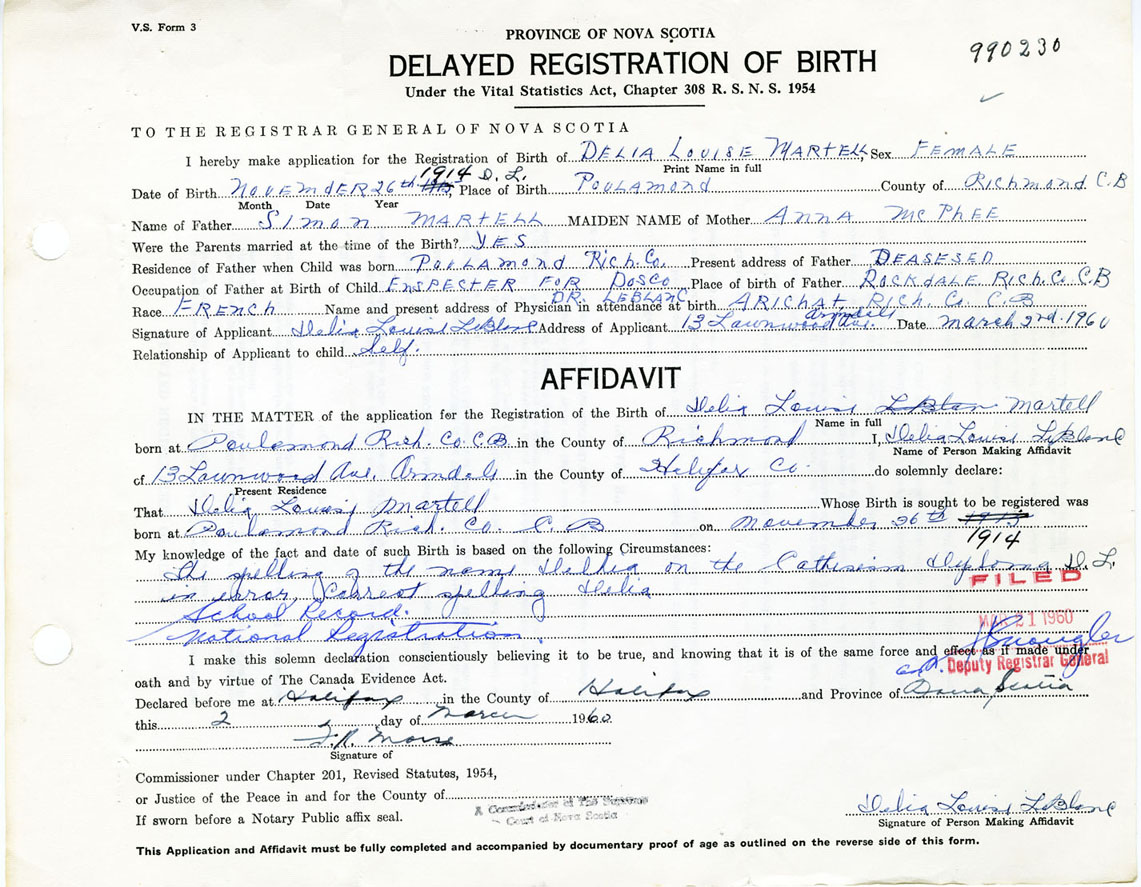 V.S. Form 3
PROVINCE OF NOVA SCOTIA
990230
DELAYED REGISTRATION OF BIRTH
Under the Vital Statistics Act, Chapter 308 R. S. N. S. 1954
TO THE REGISTRAR GENERAL OF NOVA SCOTIA
I hereby make application for the Registration of Birth of DELIA LOUISE MARTELL, Sex FEMALE
Print Name in full
1914 D. L.
Date of Birth NOVEMBER 26th, Place of Birth POULAMOND County of RICHMOND C.B
Month Date Year
Name of Father SIMON MARTELL MAIDEN NAME of Mother ANNA McPHEE
Were the Parents married at the time of the Birth? YES
Residence of Father when Child was born POULAMOND RICH. Co. Present address of Father DEASESED
Occupation of Father at Birth of Child ENSPECTER FOR DOSCO Place of birth of Father ROCKDALE RICH. Co. C.B
DR. LEBLANC
Race FRENCH Name and present address of Physician in attendance at birth ARICHAT RICH. Co. C.B
Armdale
Signature of Applicant Delia Louise LeBlanc Address of Applicant 13 Lawnwood Ave. Date March 2nd. 1960
Relationship of Applicant to child Self.
AFFIDAVIT
IN THE MATTER of the application for the Registration of the Birth of Delia Louise LeBlan Martell
Name in full
born at Poulamond Rich. Co. C.B in the County of Richmond I, Delia Louise LeBlanc
Name of Person Making Affidavit
of 13 Lawnwood Ave. Armdale in the County of Halifax Co. do solemnly declare:
Present Residence
That Delia Louise Martell Whose Birth is sought to be registered was
born at Poulamond Rich. Co. C. B on November 26th 1913
1914
My knowledge of the fact and date of such Birth is based on the following Circumstances:
The spelling of the name Dellia on the Cathecism Diploma D. L.
in error, Correct spelling Delia
FILED
School Record.
MAR 21 1960
National Registration.
I make this solemn declaration conscientiously believing it to be true, and knowing that it is of the same force and effect as if made under
Deputy Registrar General
oath and by virtue of The Canada Evidence Act.
Declared before me at Halifax in the County of Halifax and Province of Nova Scotia
this 2 day of March 1960
F.R. Morse
Signature of
Commissioner under Chapter 201, Revised Statutes, 1954,
or Justice of the Peace in and for the County of
A Commissioner of The Supreme
Court of Nova Scotia
If sworn before a Notary Public affix seal.
Delia Louise LeBlanc
Signature of Person Making Affidavit
This Application and Affidavit must be fully completed and accompanied by documentary proof of age as outlined on the reverse side of this form.